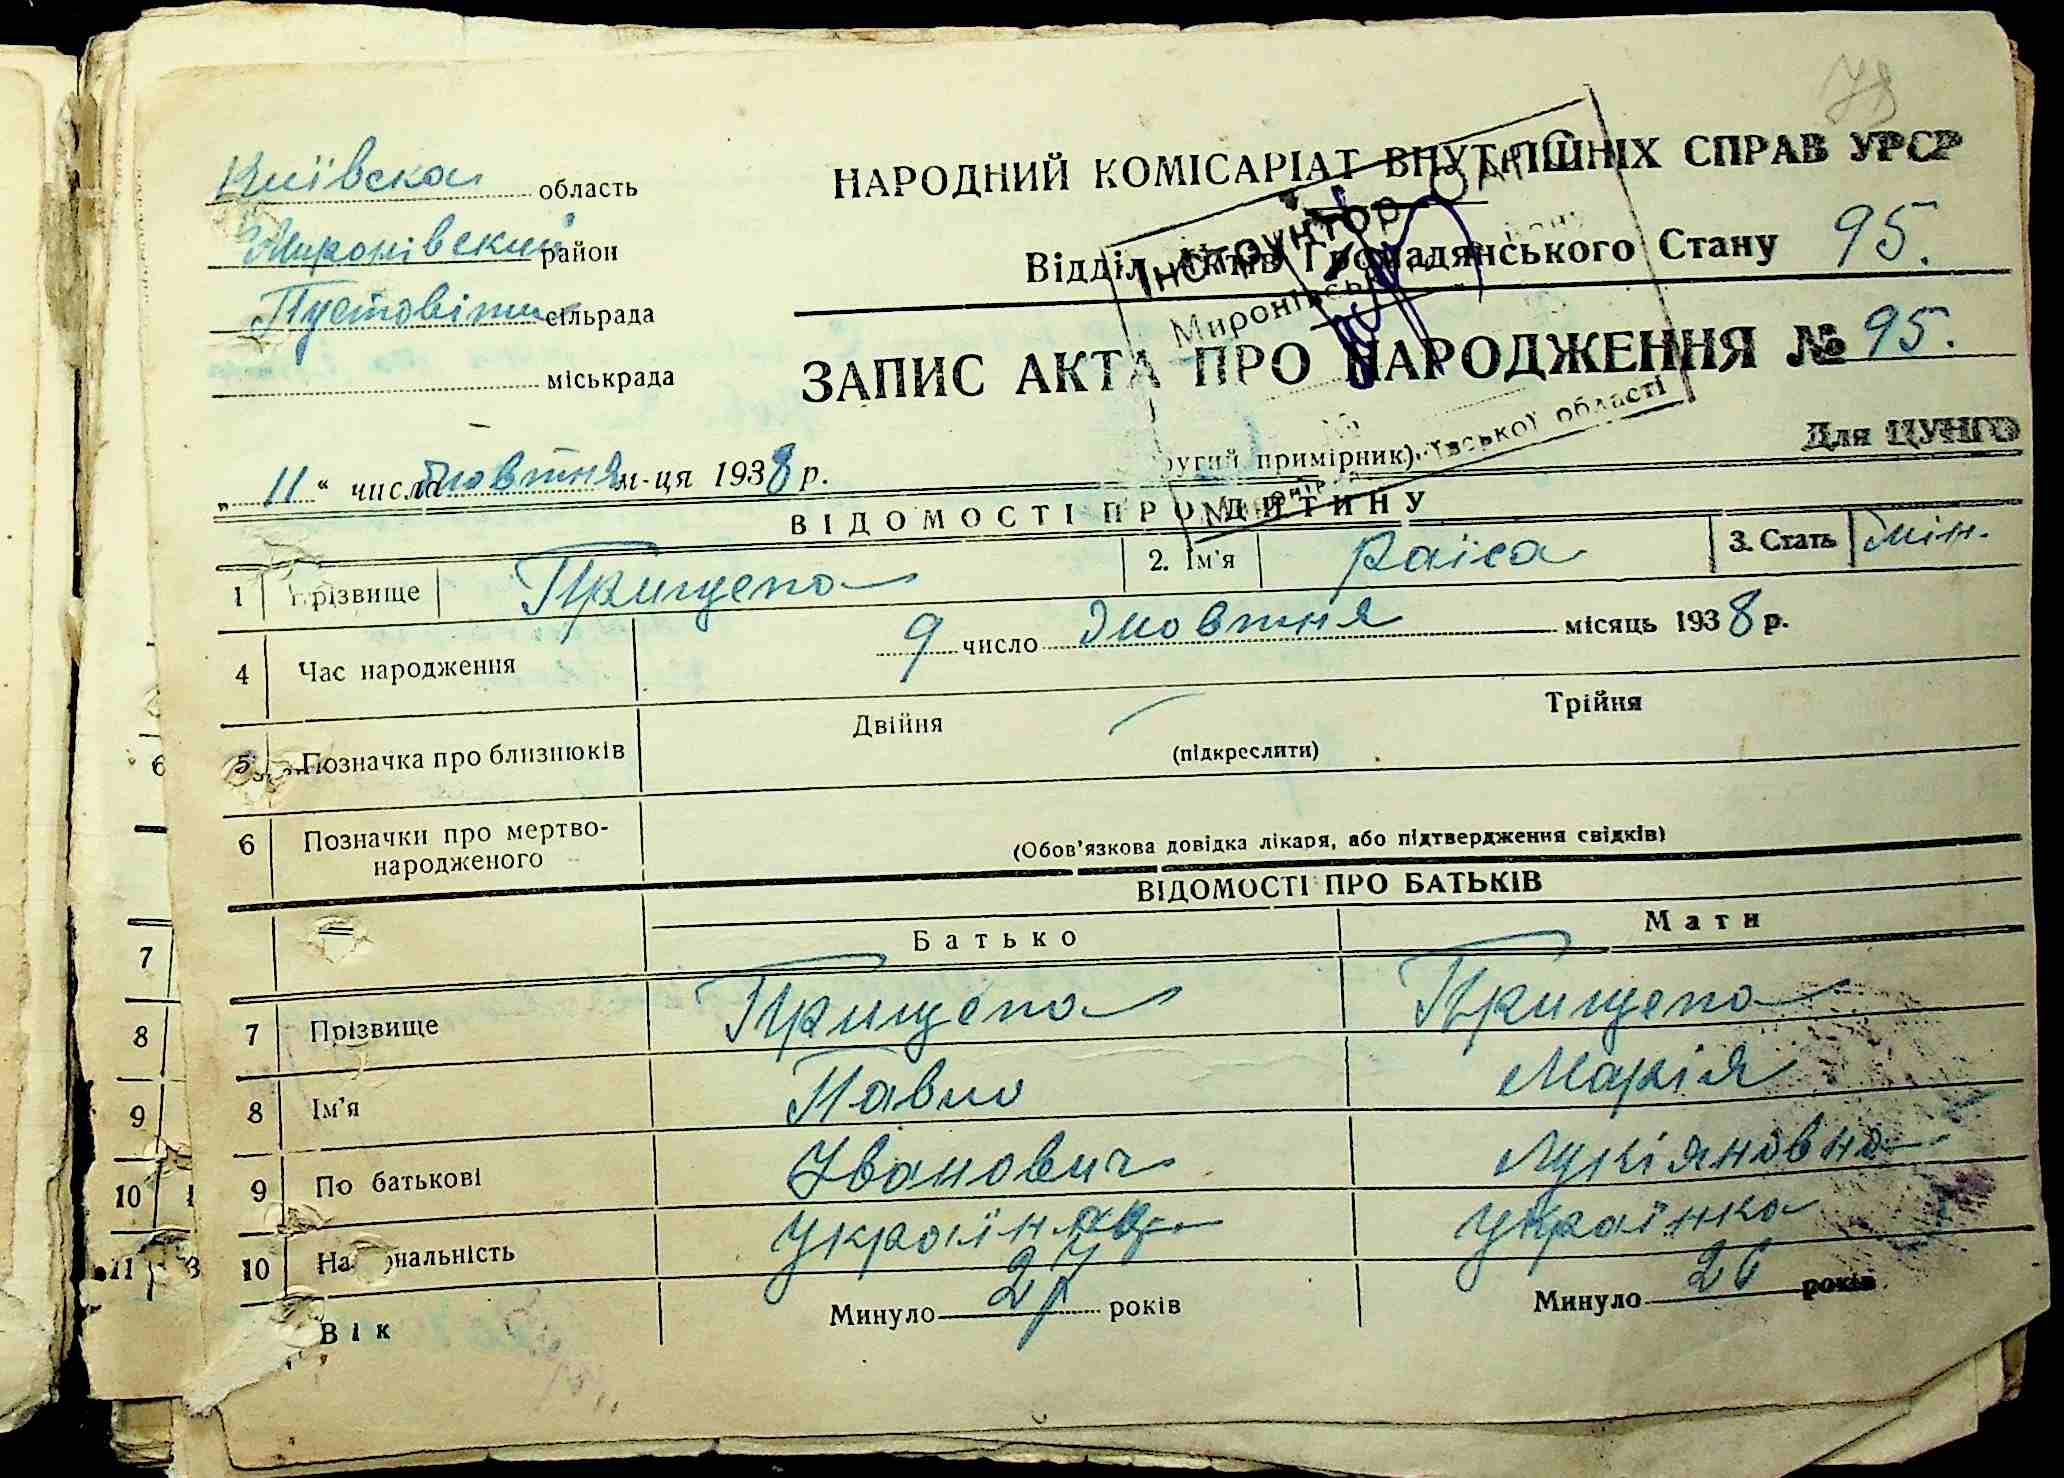 78
Київська область
Миронівский район
Пустовіти сільрада
міськрада
НАРОДНИЙ КОМІСАРІАТ ВНУТРІШНІХ СПРАВ УРСР
Відділ Актів Громадянського Стану 95.
ЗАПИС АКТА ПРО НАРОДЖЕННЯ № 95.
Інструктор ОАГС
Миронівськ
Київської області
Для ЦУНГО
„11“ числа жовтня м-ця 1938 р.
(другий примірник)
ВІДОМОСТІ ПРО ДИТИНУ
1 Прізвище Прищепа 2. Ім'я Раїса 3. Стать жін.
4 Час народження 9 число жовтня місяць 1938 р.
5 Позначка про близнюків Двійня Трійня
(підкреслити)
6 Позначки про мертво-
народженого (Обов'язкова довідка лікаря, або підтвердження свідків)
ВІДОМОСТІ ПРО БАТЬКІВ
Батько Мати
7 Прізвище Прищепа Прищепа
8 Ім'я Павло Марія
9 По батькові Іванович Лукіяновна
10 Національність українець українка
Вік Минуло 27 років Минуло 26 років
6
7
8
9
10
11